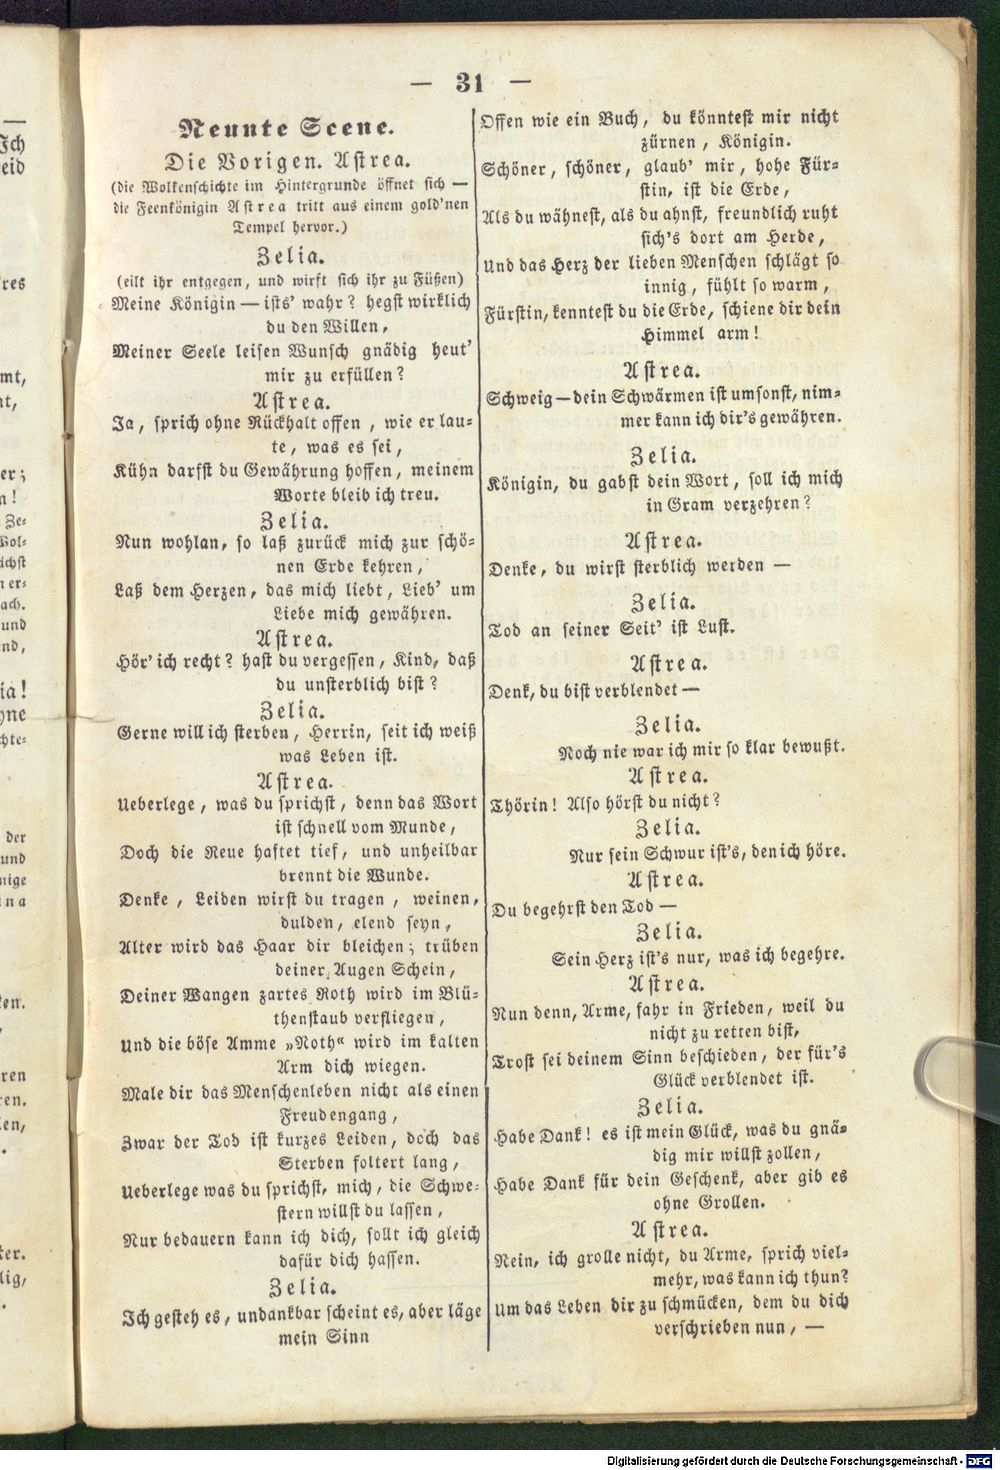 — 31 —
Neunte Scene.
Die Vorigen. Astrea.
(die Wolkenschichte im Hintergrunde öffnet sich —
die Feenkönigin Astrea tritt aus einem gold'nen
Tempel hervor.)
Zelia.
(eilt ihr entgegen, und wirft sich ihr zu Füßen)
Meine Königin — ists' wahr? hegst wirklich
du den Willen,
Meiner Seele leisen Wunsch gnädig heut'
mir zu erfüllen?
Astrea.
Ja, sprich ohne Rückhalt offen, wie er lau=
te, was es sei,
Kühn darfst du Gewährung hoffen, meinem
Worte bleib ich treu.
Zelia.
Nun wohlan, so laß zurück mich zur schö=
nen Erde kehren,
Laß dem Herzen, das mich liebt, Lieb' um
Liebe mich gewähren.
Astrea.
Hör' ich recht? hast du vergessen, Kind, daß
du unsterblich bist?
Zelia.
Gerne will ich sterben, Herrin, seit ich weiß
was Leben ist.
Astrea.
Ueberlege, was du sprichst, denn das Wort
ist schnell vom Munde,
Doch die Reue haftet tief, und unheilbar
brennt die Wunde.
Denke, Leiden wirst du tragen, weinen,
dulden, elend seyn,
Alter wird das Haar dir bleichen; trüben
deiner Augen Schein,
Deiner Wangen zartes Roth wird im Blü=
thenstaub verfliegen,
Und die böse Amme „Noth“ wird im kalten
Arm dich wiegen.
Male dir das Menschenleben nicht als einen
Freudengang,
Zwar der Tod ist kurzes Leiden, doch das
Sterben foltert lang,
Ueberlege was du sprichst, mich, die Schwe=
stern willst du lassen,
Nur bedauern kann ich dich, sollt ich gleich
dafür dich hassen.
Zelia.
Ich gesteh es, undankbar scheint es, aber läge
mein Sinn
Offen wie ein Buch, du könntest mir nicht
zürnen, Königin.
Schöner, schöner, glaub' mir, hohe Für=
stin, ist die Erde,
Als du wähnest, als du ahnst, freundlich ruht
sich's dort am Herde,
Und das Herz der lieben Menschen schlägt so
innig, fühlt so warm,
Fürstin, kenntest du die Erde, schiene dir dein
Himmel arm!
Astrea.
Schweig — dein Schwärmen ist umsonst, nim=
mer kann ich dir's gewähren.
Zelia.
Königin, du gabst dein Wort, soll ich mich
in Gram verzehren?
Astrea.
Denke, du wirst sterblich werden —
Zelia.
Tod an seiner Seit' ist Lust.
Astrea.
Denk, du bist verblendet —
Zelia.
Noch nie war ich mir so klar bewußt.
Astrea.
Thörin! Also hörst du nicht?
Zelia.
Nur sein Schwur ist's, den ich höre.
Astrea.
Du begehrst den Tod —
Zelia.
Sein Herz ist's nur, was ich begehre.
Astrea.
Nun denn, Arme, fahr in Frieden, weil du
nicht zu retten bist,
Trost sei deinem Sinn beschieden, der für's
Glück verblendet ist.
Zelia.
Habe Dank! es ist mein Glück, was du gnä=
dig mir willst zollen,
Habe Dank für dein Geschenk, aber gib es
ohne Grollen.
Astrea.
Nein, ich grolle nicht, du Arme, sprich viel=
mehr, was kann ich thun?
Um das Leben dir zu schmücken, dem du dich
verschrieben nun, —
Digitalisierung gefördert durch die Deutsche Forschungsgemeinschaft - DFG